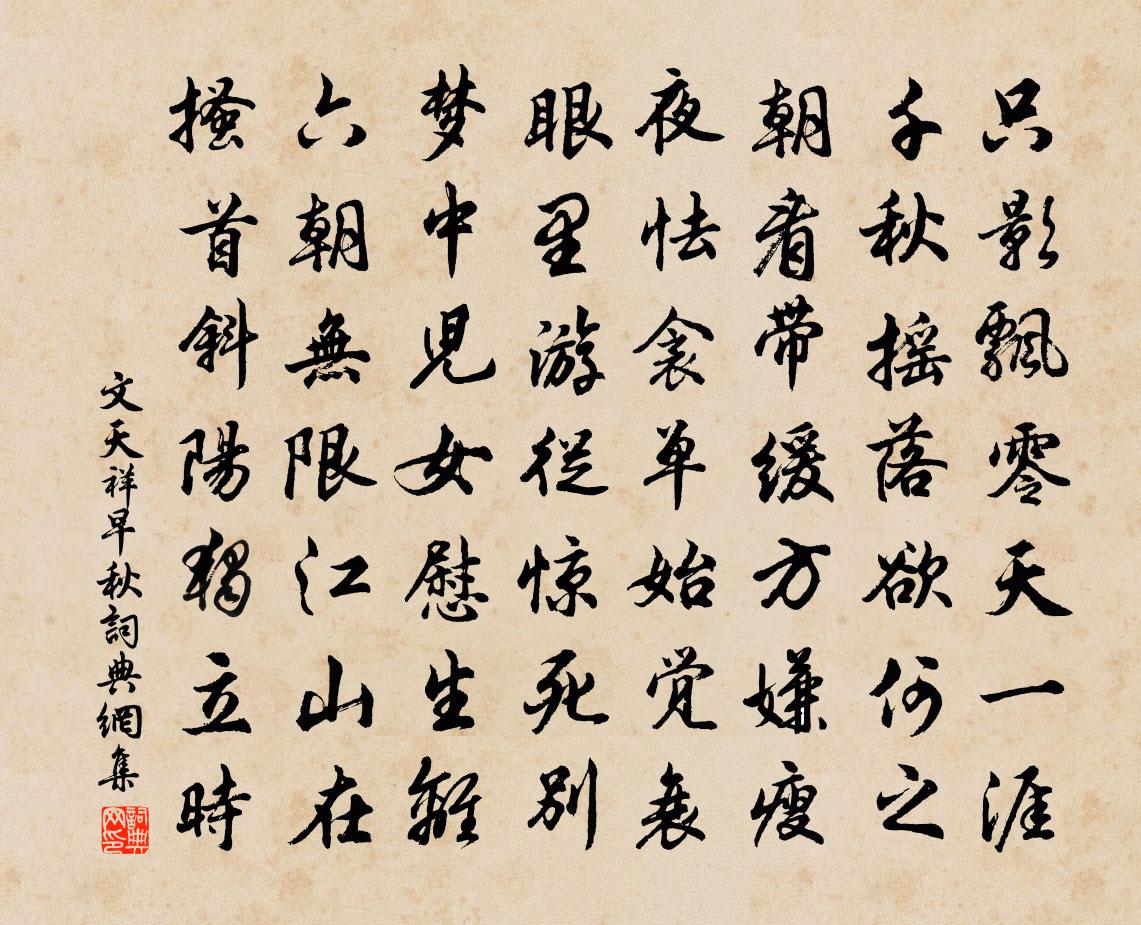 只影飄零天一涯
千秋摇落欲何之
朝看带缓方嫌瘦
夜怯衾单始觉衰
眼里游從惊死别
梦中児女慰生離
六朝無限江山在
搔首斜陽獨立時
文天祥早秋詞典網集
詞典网印